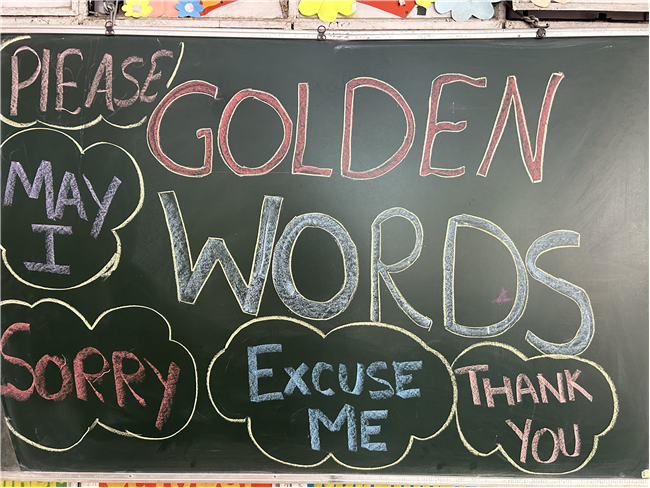 PlEASE
GOLDEN
WORDS
MAY
I
SORRY
EXCUSE
ME
THANK
YOU